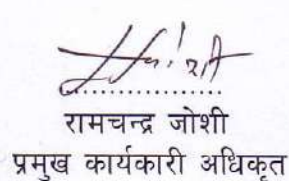 ....................
रामचन्द्र जोशी
प्रमुख कार्यकारी अधिकृत